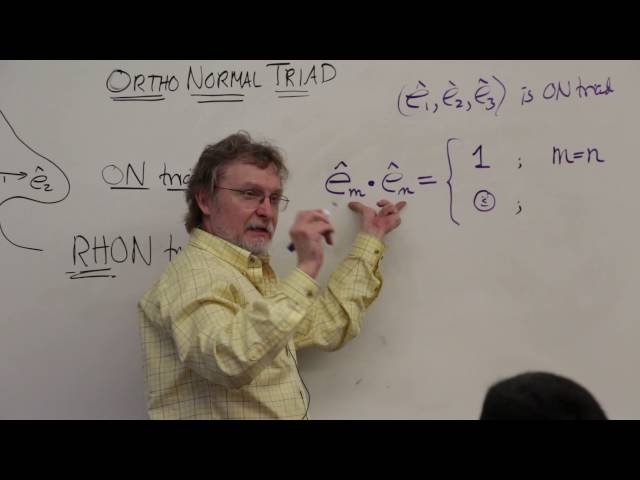 ORTHO NORMAL TRIAD
(ê₁, ê₂, ê₃) is ON triad
ON tri
êₘ · êₙ = { 1 ; m=n
0 ;
→ ê₂
RHON t